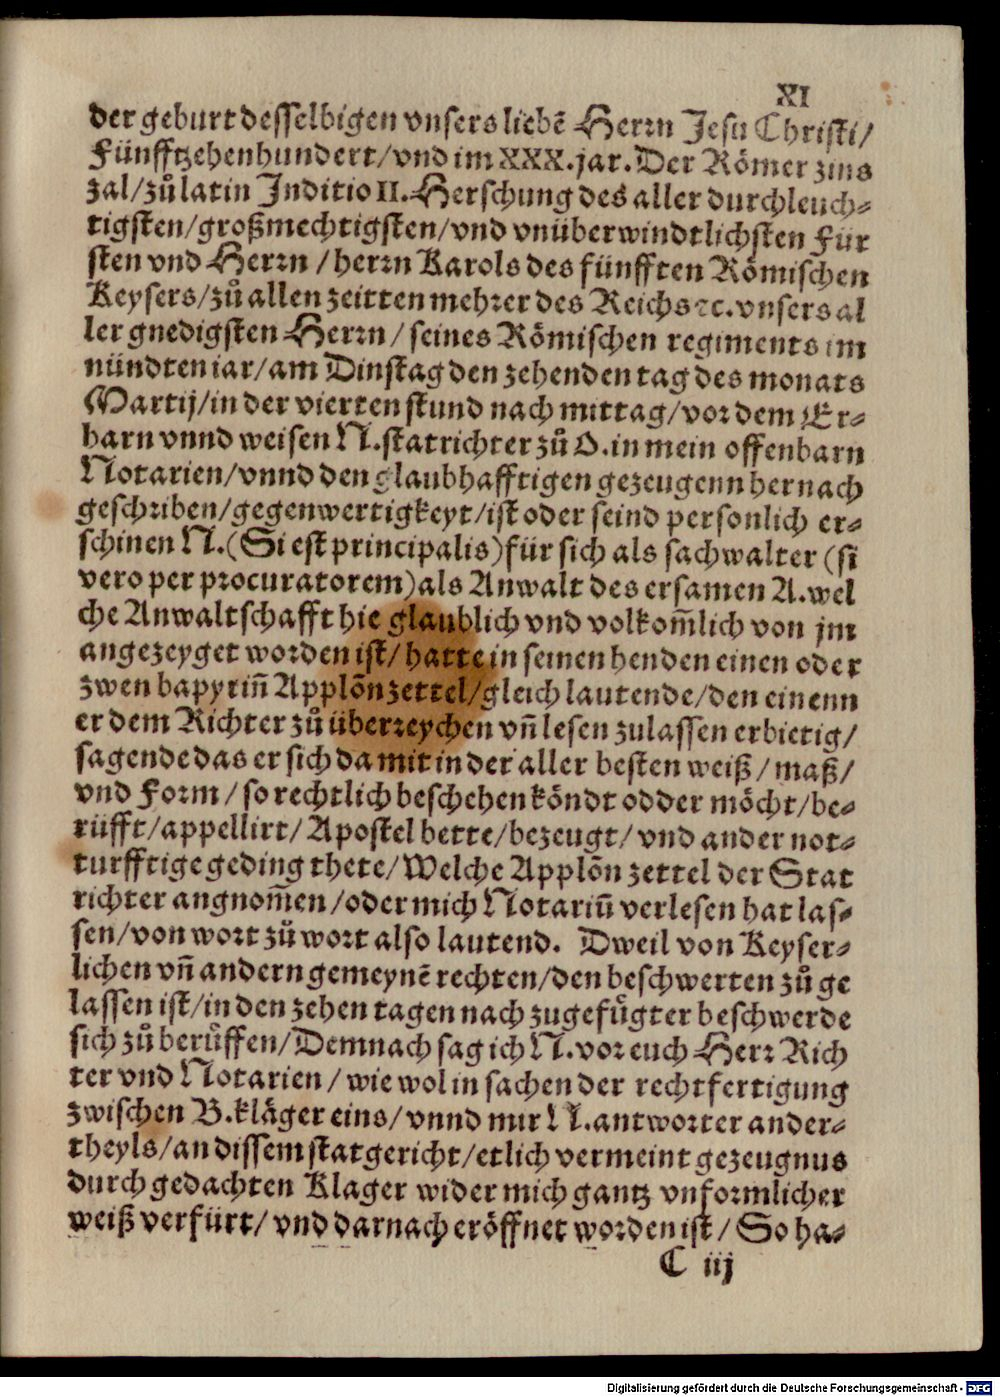 XI
der geburt desselbigen vnsers liebē Herrn Jesu Christi/
Fünfftzehenhundert/vnd im XXX.jar.Der Römer zins
zal/zů latin Inditio II.Herschung des aller durchleuch⸗
tigsten/großmechtigsten/vnd vnüberwindtlichsten Für
sten vnd Herrn /herrn Karols des fünfften Römischen
Keysers/zů allen zeitten mehrer des Reichs ꝛc.vnsers al
ler gnedigsten Herrn/ seines Römischen regiments im
nündten iar/am Dinstag den zehenden tag des monats
Martij/in der vierten stund nach mittag/vor dem Er⸗
barn vnnd weisen N.statrichter zů O.in mein offenbarn
Notarien/vnnd den glaubhafftigen gezeugenn hernach
geschriben/gegenwertigkeyt/ist oder seind personlich er⸗
schinen N.(Si est principalis)für sich als sachwalter (si
vero per procuratorem)als Anwalt des ersamen A.wel
che Anwaltschafft hie glaublich vnd volkom̄lich von jm
angezeyget worden ist/hatte in seinen henden einen oder
zwen bapyrin̄ Applōn zettel/gleich lautende/den einenn
er dem Richter zů überreychen vn̄ lesen zulassen erbietig/
sagende das er sich da mit in der aller besten weiß/maß/
vnd Form/so rechtlich beschehen köndt odder möcht/be⸗
rüfft/appellirt/Apostel bette/bezeugt/vnd ander not⸗
turfftige geding thete/Welche Applōn zettel der Stat
richter angnom̄en/oder mich Notariū verlesen hat las⸗
sen/von wort zů wort also lautend. Dweil von Keyser⸗
lichen vn̄ andern gemeynē rechten/den beschwerten zů ge
lassen ist/in den zehen tagen nach zugefůgter beschwerde
sich zů berůffen/Demnach sag ich N.vor euch Herr Rich
ter vnd Notarien/ wie wol in sachen der rechtfertigung
zwischen B.kläger eins/vnnd mir N.antworter ander⸗
theyls/an dissem statgericht/etlich vermeint gezeugnus
durch gedachten Klager wider mich gantz vnformlicher
weiß verfürt/vnd darnach eröffnet worden ist/So ha⸗
C iij
Digitalisierung gefördert durch die Deutsche Forschungsgemeinschaft - DFG